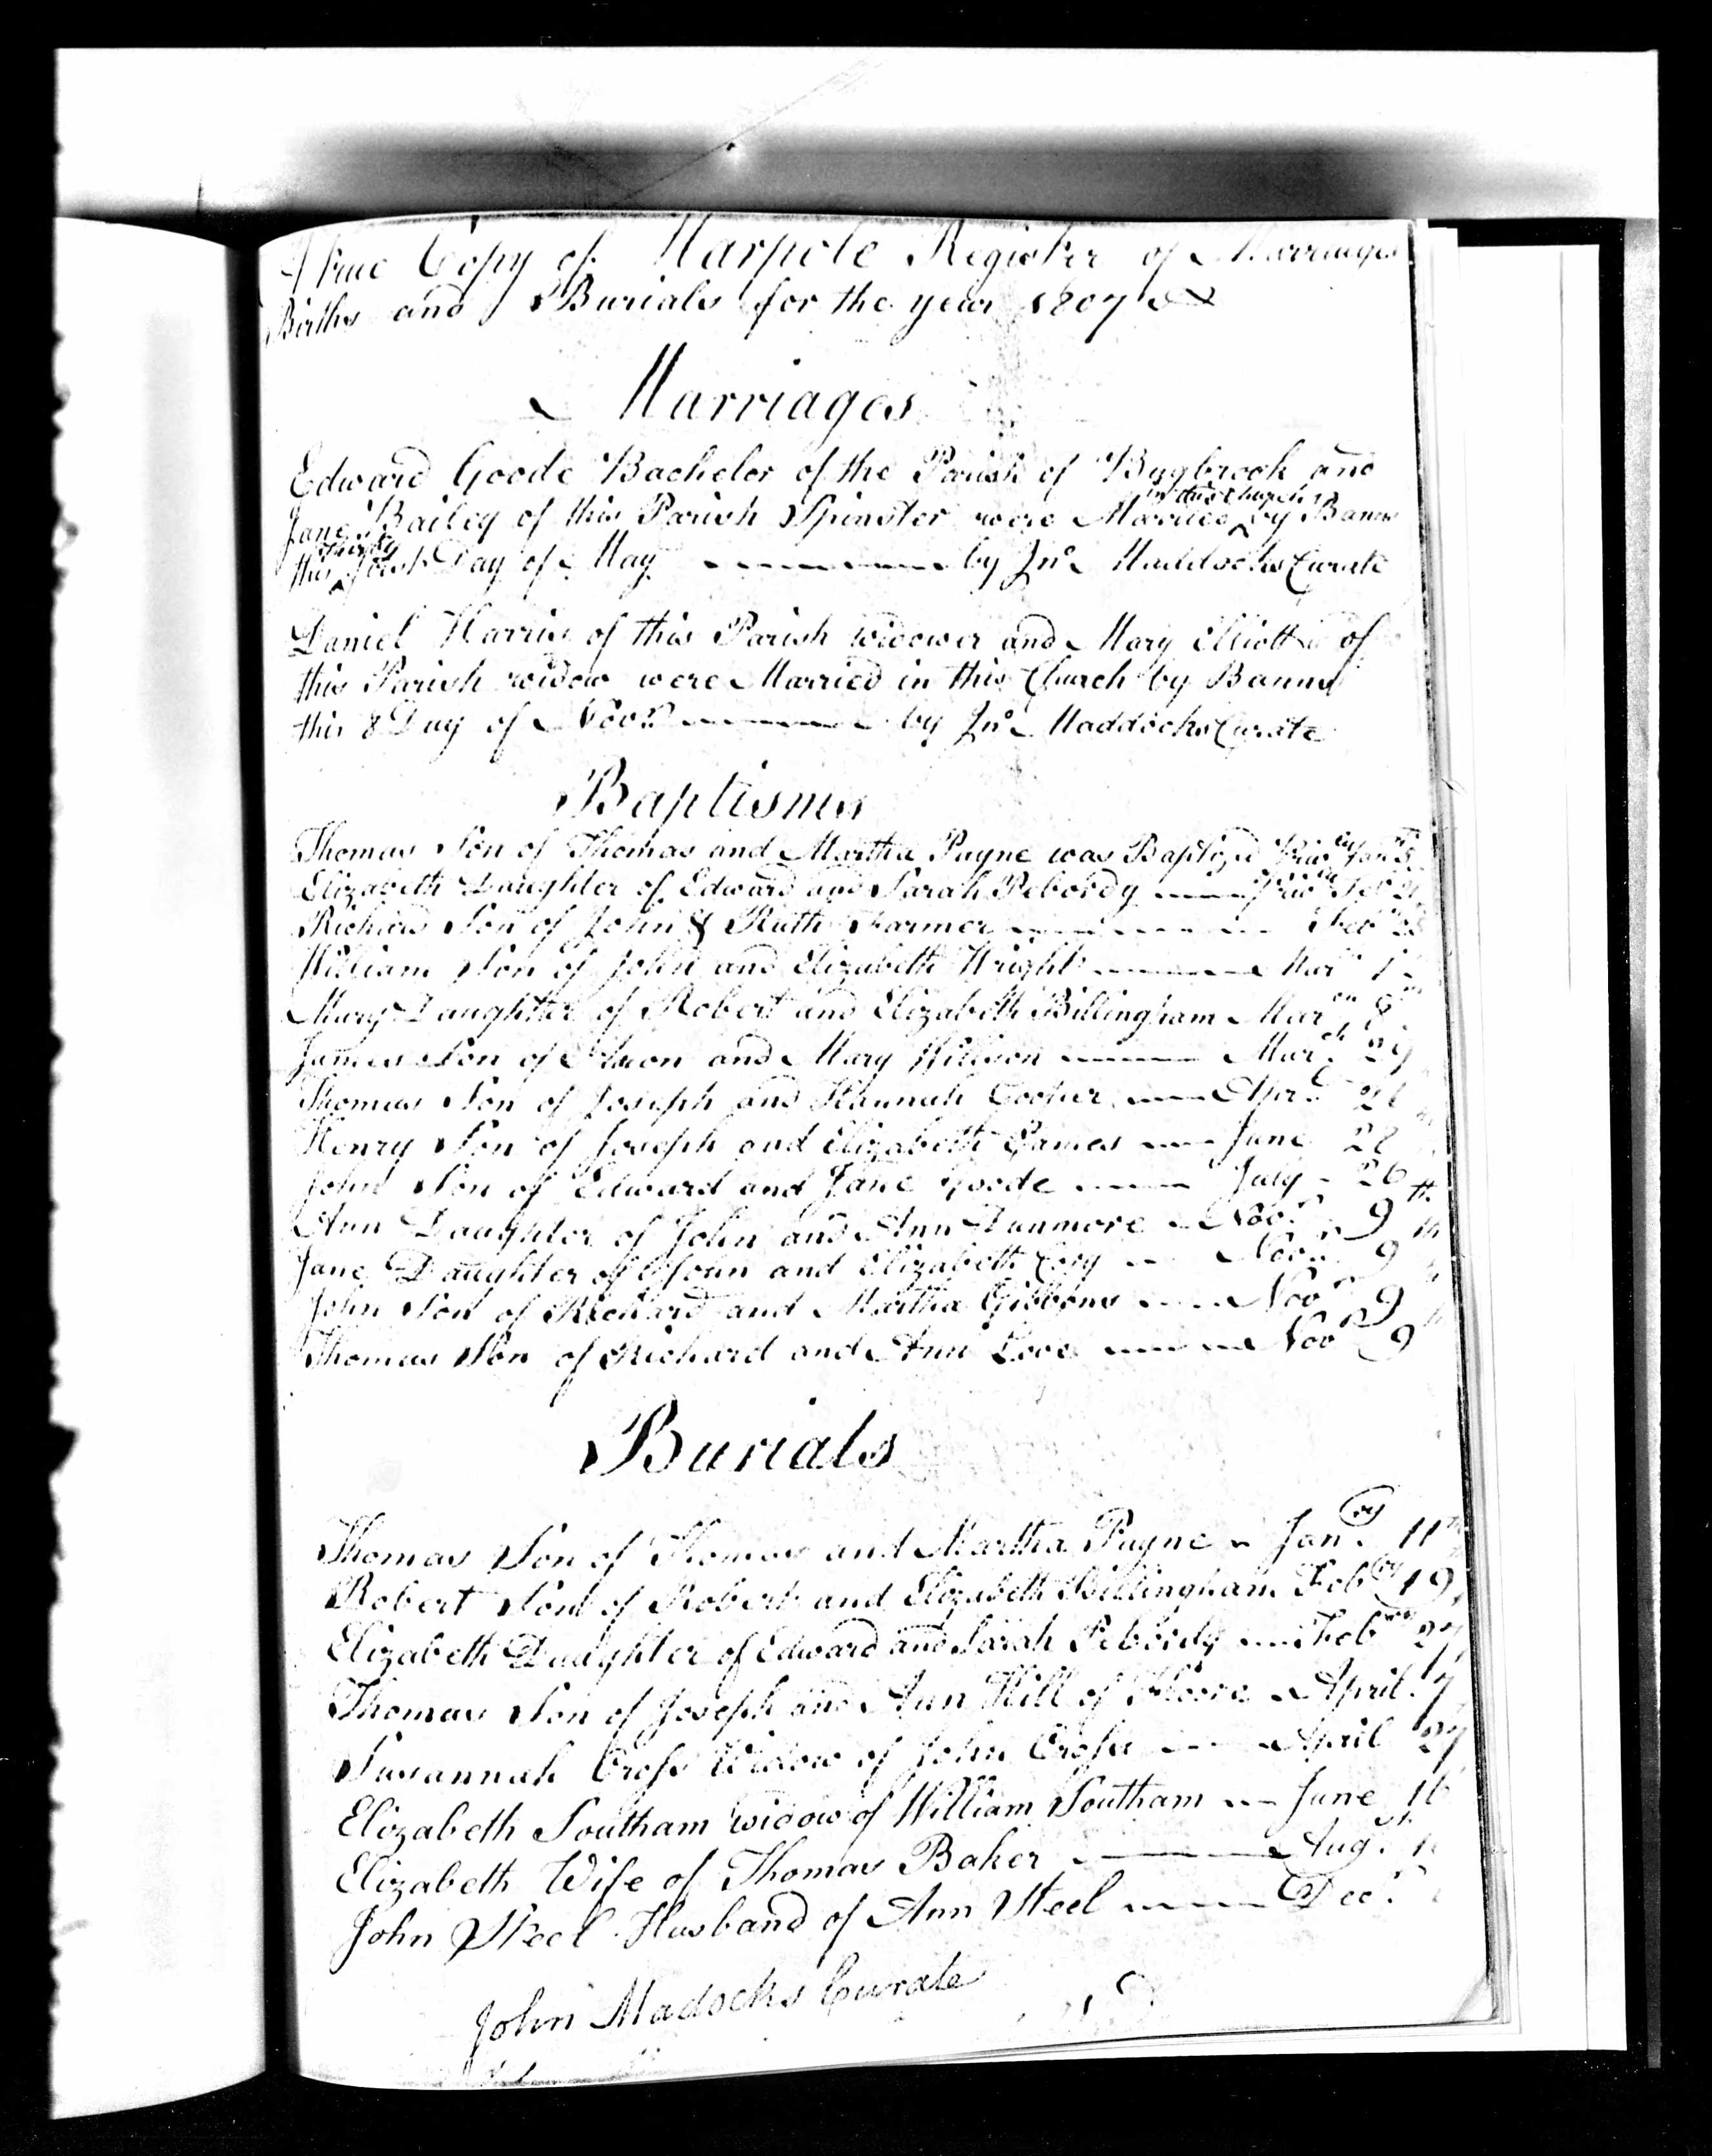 A true Copy of Harpole Register of Marriages
Births and Burials for the year 1807
Marriages
Edward Goode Bachelor of the Parish of Bugbrook and
in this Church
Jane Bailey of this Parish Spinster were Married by Banns
this first Day of May by Jno Maddocks Curate
Daniel Harris of this Parish widower and Mary Elliott of
this Parish widow were Married in this Church by Banns
this 8 Day of Novr by Jno Maddocks Curate
Baptisms
Thomas Son of Thomas and Martha Payne was Baptized
Elizabeth Daughter of Edward and Sarah Pebordy Feb
Richard Son of John & Ruth Farmer Feb
William Son of John and Elizabeth Wright Mar 1
Mary Daughter of Robert and Elizabeth Billingham Mar 8
James Son of and Mary Mar 29
Thomas Son of Joseph and Hannah Cooper Apr
Henry Son of Joseph and Elizabeth Eames June 28
John Son of Edward and Jane Goode July 26th
Ann Daughter of John and Ann Dunmore Novr 9th
Jane Daughter of John and Elizabeth Cory Novr 9
John Son of Richard and Martha Gibbons Novr 9
Thomas Son of Richard and Ann Love Novr 9
Burials
Thomas Son of Thomas and Martha Payne Janry 11th
Robert Son of Robert and Elizabeth Billingham Febry 19
Elizabeth Daughter of Edward and Sarah Pebordy Feb 27
Thomas Son of Joseph and Ann Hill of Floore April 17
Susannah Cross Widow of John Cross April 27
Elizabeth Southam widow of William Southam June 16
Elizabeth Wife of Thomas Baker Augst
John Steel Husband of Ann Steel Decr
John Madocks Curate